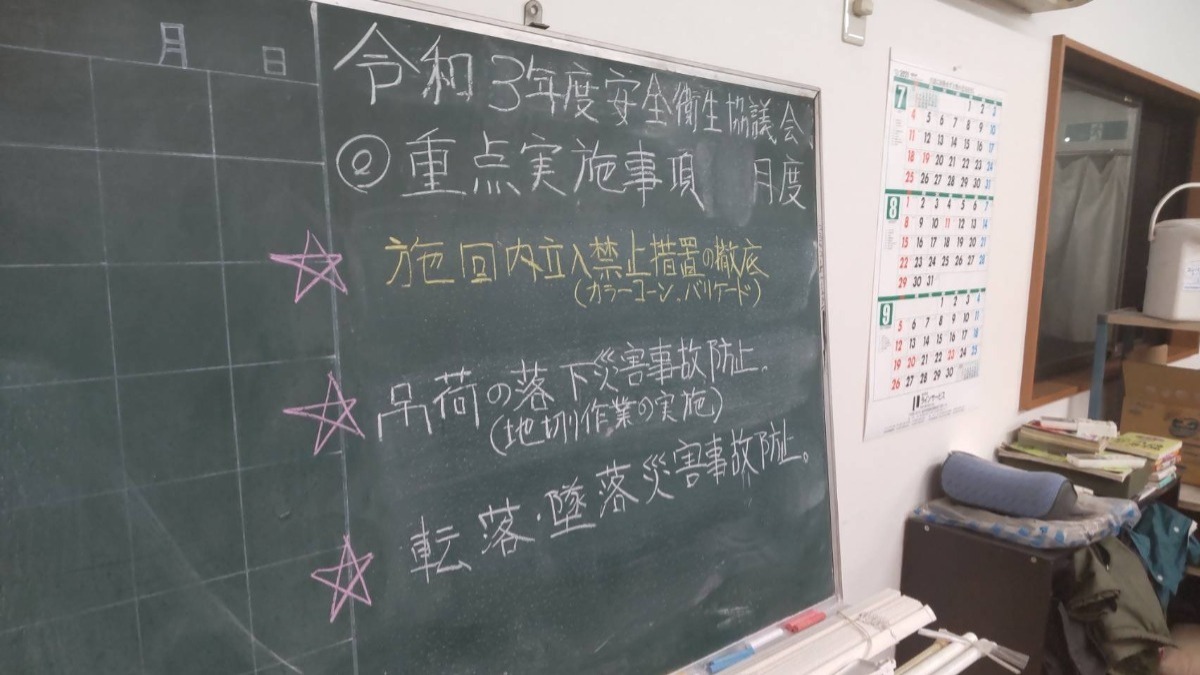 月 日
令和3年度安全衛生協議会
◎重点実施事項 月度
☆ 施回内立入禁止措置の徹底
(カラーコーン、バリケード)
☆ 吊荷の落下災害事故防止。
(地切り作業の実施)
☆ 転落・墜落災害事故防止。
7
1 2 3
4 5 6 7 8 9 10
11 12 13 14 15 16 17
18 19 20 21 22 23 24
25 26 27 28 29 30 31
8
1 2 3 4 5 6 7
8 9 10 11 12 13 14
15 16 17 18 19 20 21
22 23 24 25 26 27 28
29 30 31
9
1 2 3 4
5 6 7 8 9 10 11
12 13 14 15 16 17 18
19 20 21 22 23 24 25
26 27 28 29 30